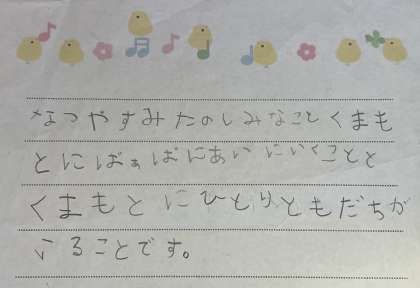 なつやすみたのしみなことくまも
とにばぁばにあいにいくことと
くまもとにひとりともだちが
いることです。